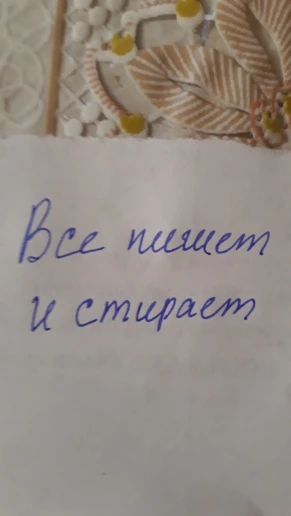 Все пишет
и стирает